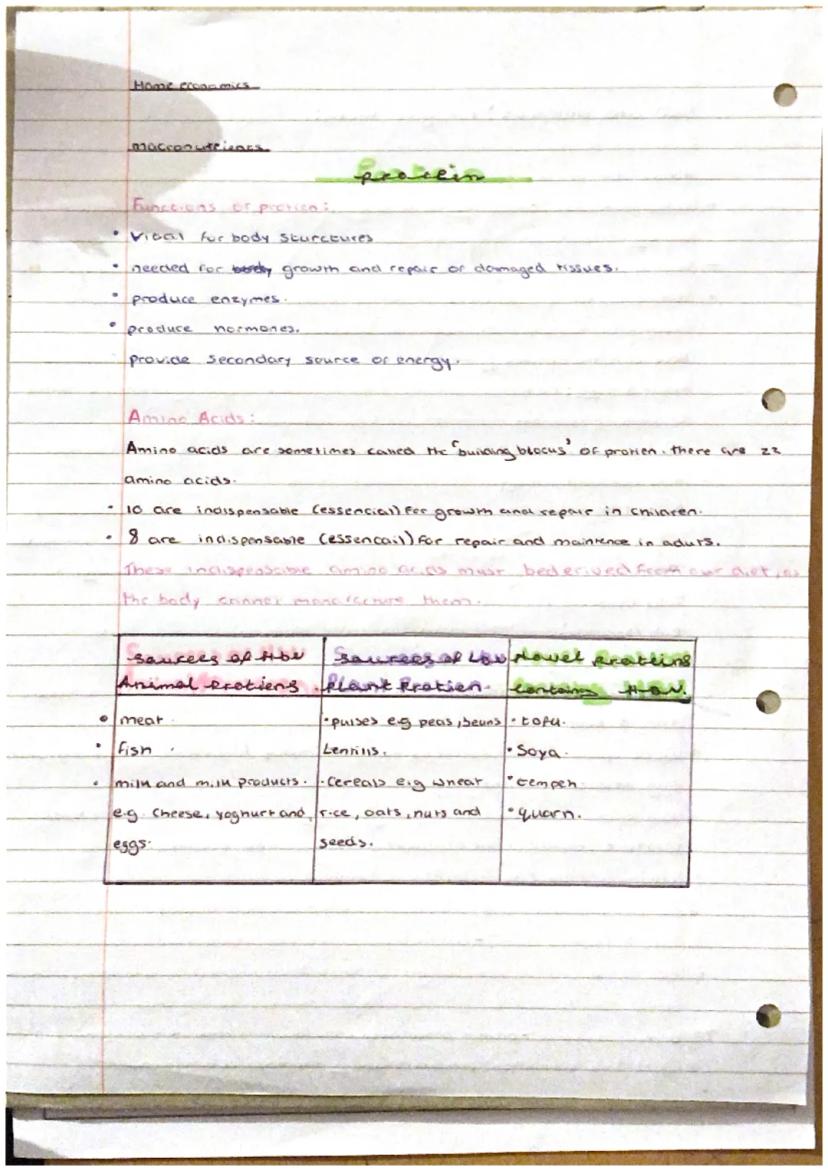 Home economics
macronutrients
protein
Functions of protien:
• Vital for body sturctures
• needed for body growth and repair of damaged tissues.
• produce enzymes.
• produce hormones.
provide secondary source of energy.
Amino Acids:
Amino acids are sometimes called the 'building blocks' of protien. there are 22
amino acids.
• 10 are indispensable (essencial) for growth and repair in children.
• 8 are indispensable (essencail) for repair and maintence in aduts.
These indispensible amino acids must be derived from our diet, as
the body cannot manufacture them.
Sources of HBV
Animal Protiens
• meat.
• fish.
• milk and milk products.
e.g. cheese, yoghurt and
eggs.
Sources of LBV
Plant Protien.
• pulses e.g peas, beans
Lentils.
• Cereals e.g wheat
rice, oats, nuts and
seeds.
Novel Protiens
contains H.B.V.
• tofu.
• Soya.
• tempeh.
• quorn.